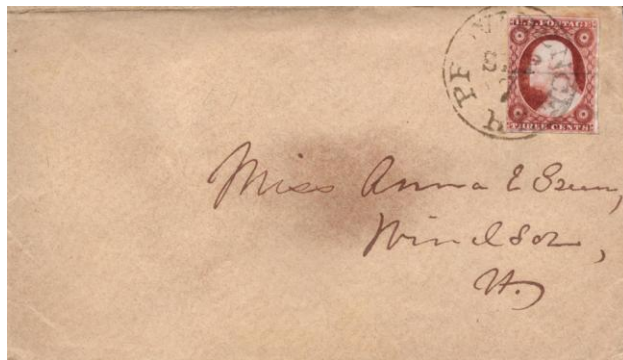 U.S. POSTAGE
THREE CENTS
Miss Anna E Green,
Windsor,
Vt.